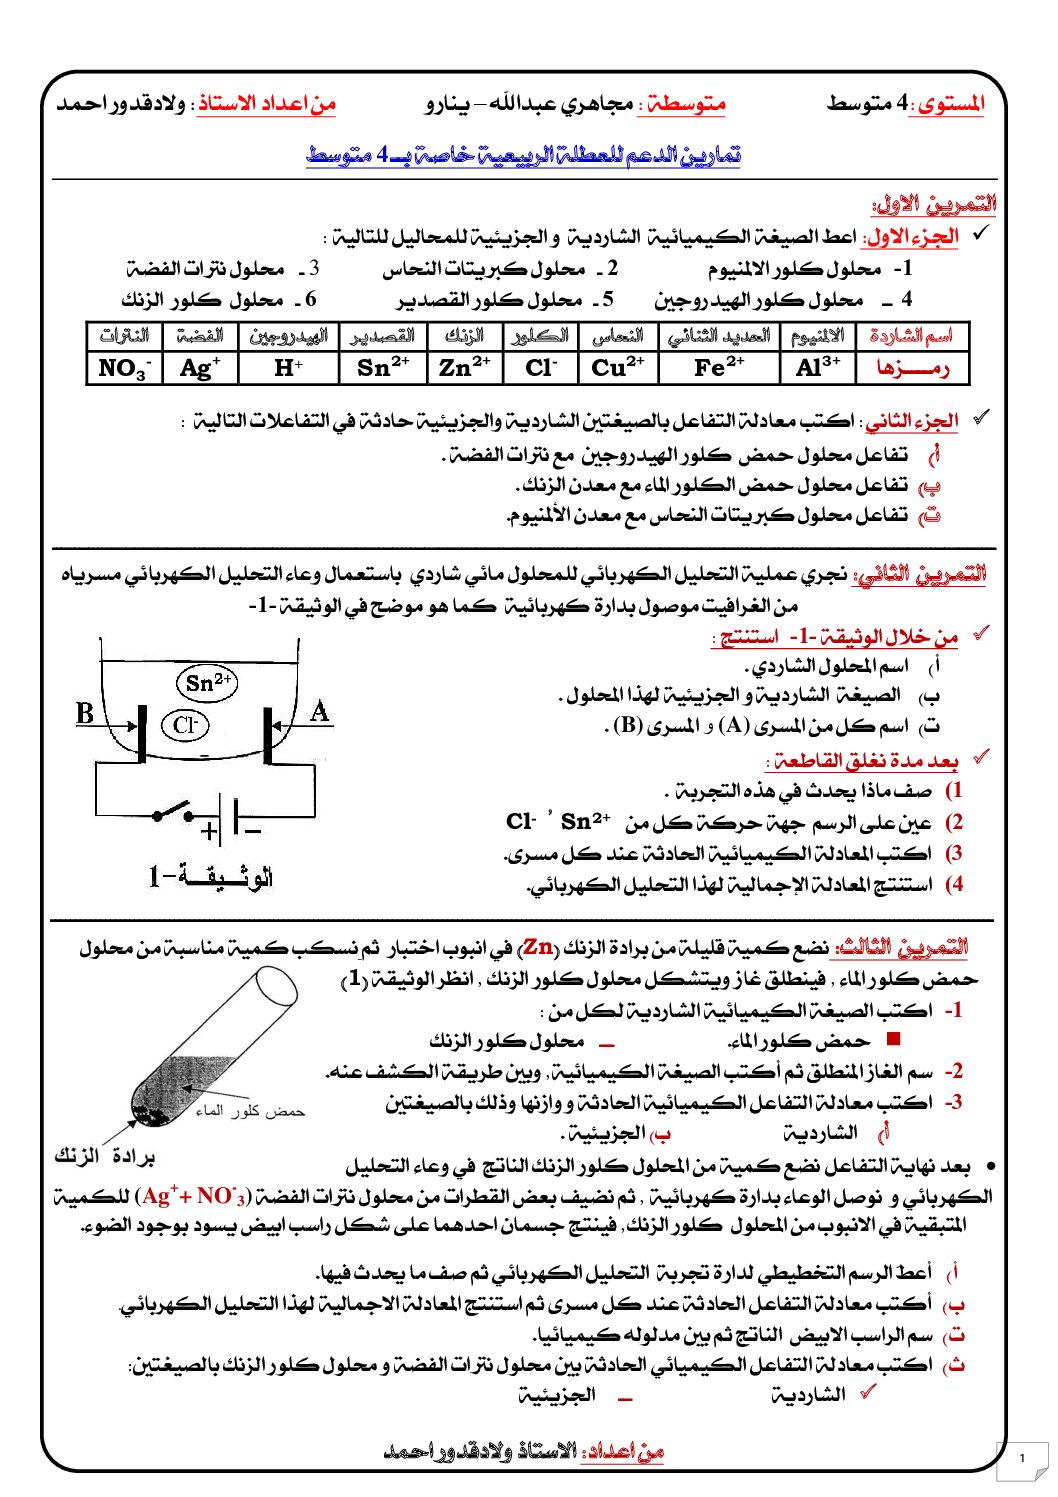 المستوى : 4 متوسط    متوسطة : مجاهري عبدالله – ينارو    من اعداد الاستاذ : ولادقدور احمد
تمارين الدعم للعطلة الربيعية خاصة بـ 4 متوسط
التمرين الاول:
✓ الجزء الاول: اعط الصيغة الكيميائية الشاردية و الجزيئية للمحاليل للتالية :
1- محلول كلور الالمنيوم    2 ـ محلول كبريتات النحاس    3 ـ محلول نترات الفضة
4 ـ محلول كلور الهيدروجين    5 ـ محلول كلور القصدير    6 ـ محلول كلور الزنك
اسم الشاردة | الالمنيوم | الحديد الثنائي | النحاس | الكلور | الزنك | القصدير | الهيدروجين | الفضة | النترات
رمــزها | Al³⁺ | Fe²⁺ | Cu²⁺ | Cl⁻ | Zn²⁺ | Sn²⁺ | H⁺ | Ag⁺ | NO₃⁻
✓ الجزء الثاني : اكتب معادلة التفاعل بالصيغتين الشاردية والجزيئية حادثة في التفاعلات التالية :
أ) تفاعل محلول حمض كلور الهيدروجين مع نترات الفضة .
ب) تفاعل محلول حمض الكلور الماء مع معدن الزنك.
ت) تفاعل محلول كبريتات النحاس مع معدن الألمنيوم.
التمرين الثاني: نجري عملية التحليل الكهربائي للمحلول مائي شاردي باستعمال وعاء التحليل الكهربائي مسرياه
من الغرافيت موصول بدارة كهربائية كما هو موضح في الوثيقة -1-
✓ من خلال الوثيقة -1- استنتج :
أ) اسم المحلول الشاردي .
ب) الصيغة الشاردية و الجزيئية لهذا المحلول .
ت) اسم كل من المسرى (A) و المسرى (B) .
✓ بعد مدة نغلق القاطعة :
1) صف ماذا يحدث في هذه التجربة .
2) عين على الرسم جهة حركة كل من Sn²⁺ , Cl⁻
3) اكتب المعادلة الكيميائية الحادثة عند كل مسرى.
4) استنتج المعادلة الإجمالية لهذا التحليل الكهربائي.
Sn²⁺
Cl⁻
B
A
+ −
الوثـيقـة-1
التمرين الثالث: نضع كمية قليلة من برادة الزنك (Zn) في انبوب اختبار ثم نسكب كمية مناسبة من محلول
حمض كلور الماء , فينطلق غاز ويتشكل محلول كلور الزنك , انظر الوثيقة (1)
1- اكتب الصيغة الكيميائية الشاردية لكل من :
■ حمض كلور الماء.    ــ محلول كلور الزنك
2- سم الغاز المنطلق ثم أكتب الصيغة الكيميائية, وبين طريقة الكشف عنه.
3- اكتب معادلة التفاعل الكيميائية الحادثة و وازنها وذلك بالصيغتين
أ) الشاردية    ب) الجزيئية .
حمض كلور الماء
برادة الزنك
• بعد نهاية التفاعل نضع كمية من المحلول كلور الزنك الناتج في وعاء التحليل
الكهربائي و نوصل الوعاء بدارة كهربائية , ثم نضيف بعض القطرات من محلول نترات الفضة (Ag⁺+ NO⁻₃) للكمية
المتبقية في الانبوب من المحلول كلور الزنك, فينتج جسمان احدهما على شكل راسب ابيض يسود بوجود الضوء.
أ) أعط الرسم التخطيطي لدارة تجربة التحليل الكهربائي ثم صف ما يحدث فيها.
ب) أكتب معادلة التفاعل الحادثة عند كل مسرى ثم استنتج المعادلة الاجمالية لهذا التحليل الكهربائي.
ت) سم الراسب الابيض الناتج ثم بين مدلوله كيميائيا.
ث) اكتب معادلة التفاعل الكيميائي الحادثة بين محلول نترات الفضة و محلول كلور الزنك بالصيغتين:
✓ الشاردية    ــ الجزيئية
من اعداد: الاستاذ ولادقدور احمد
1